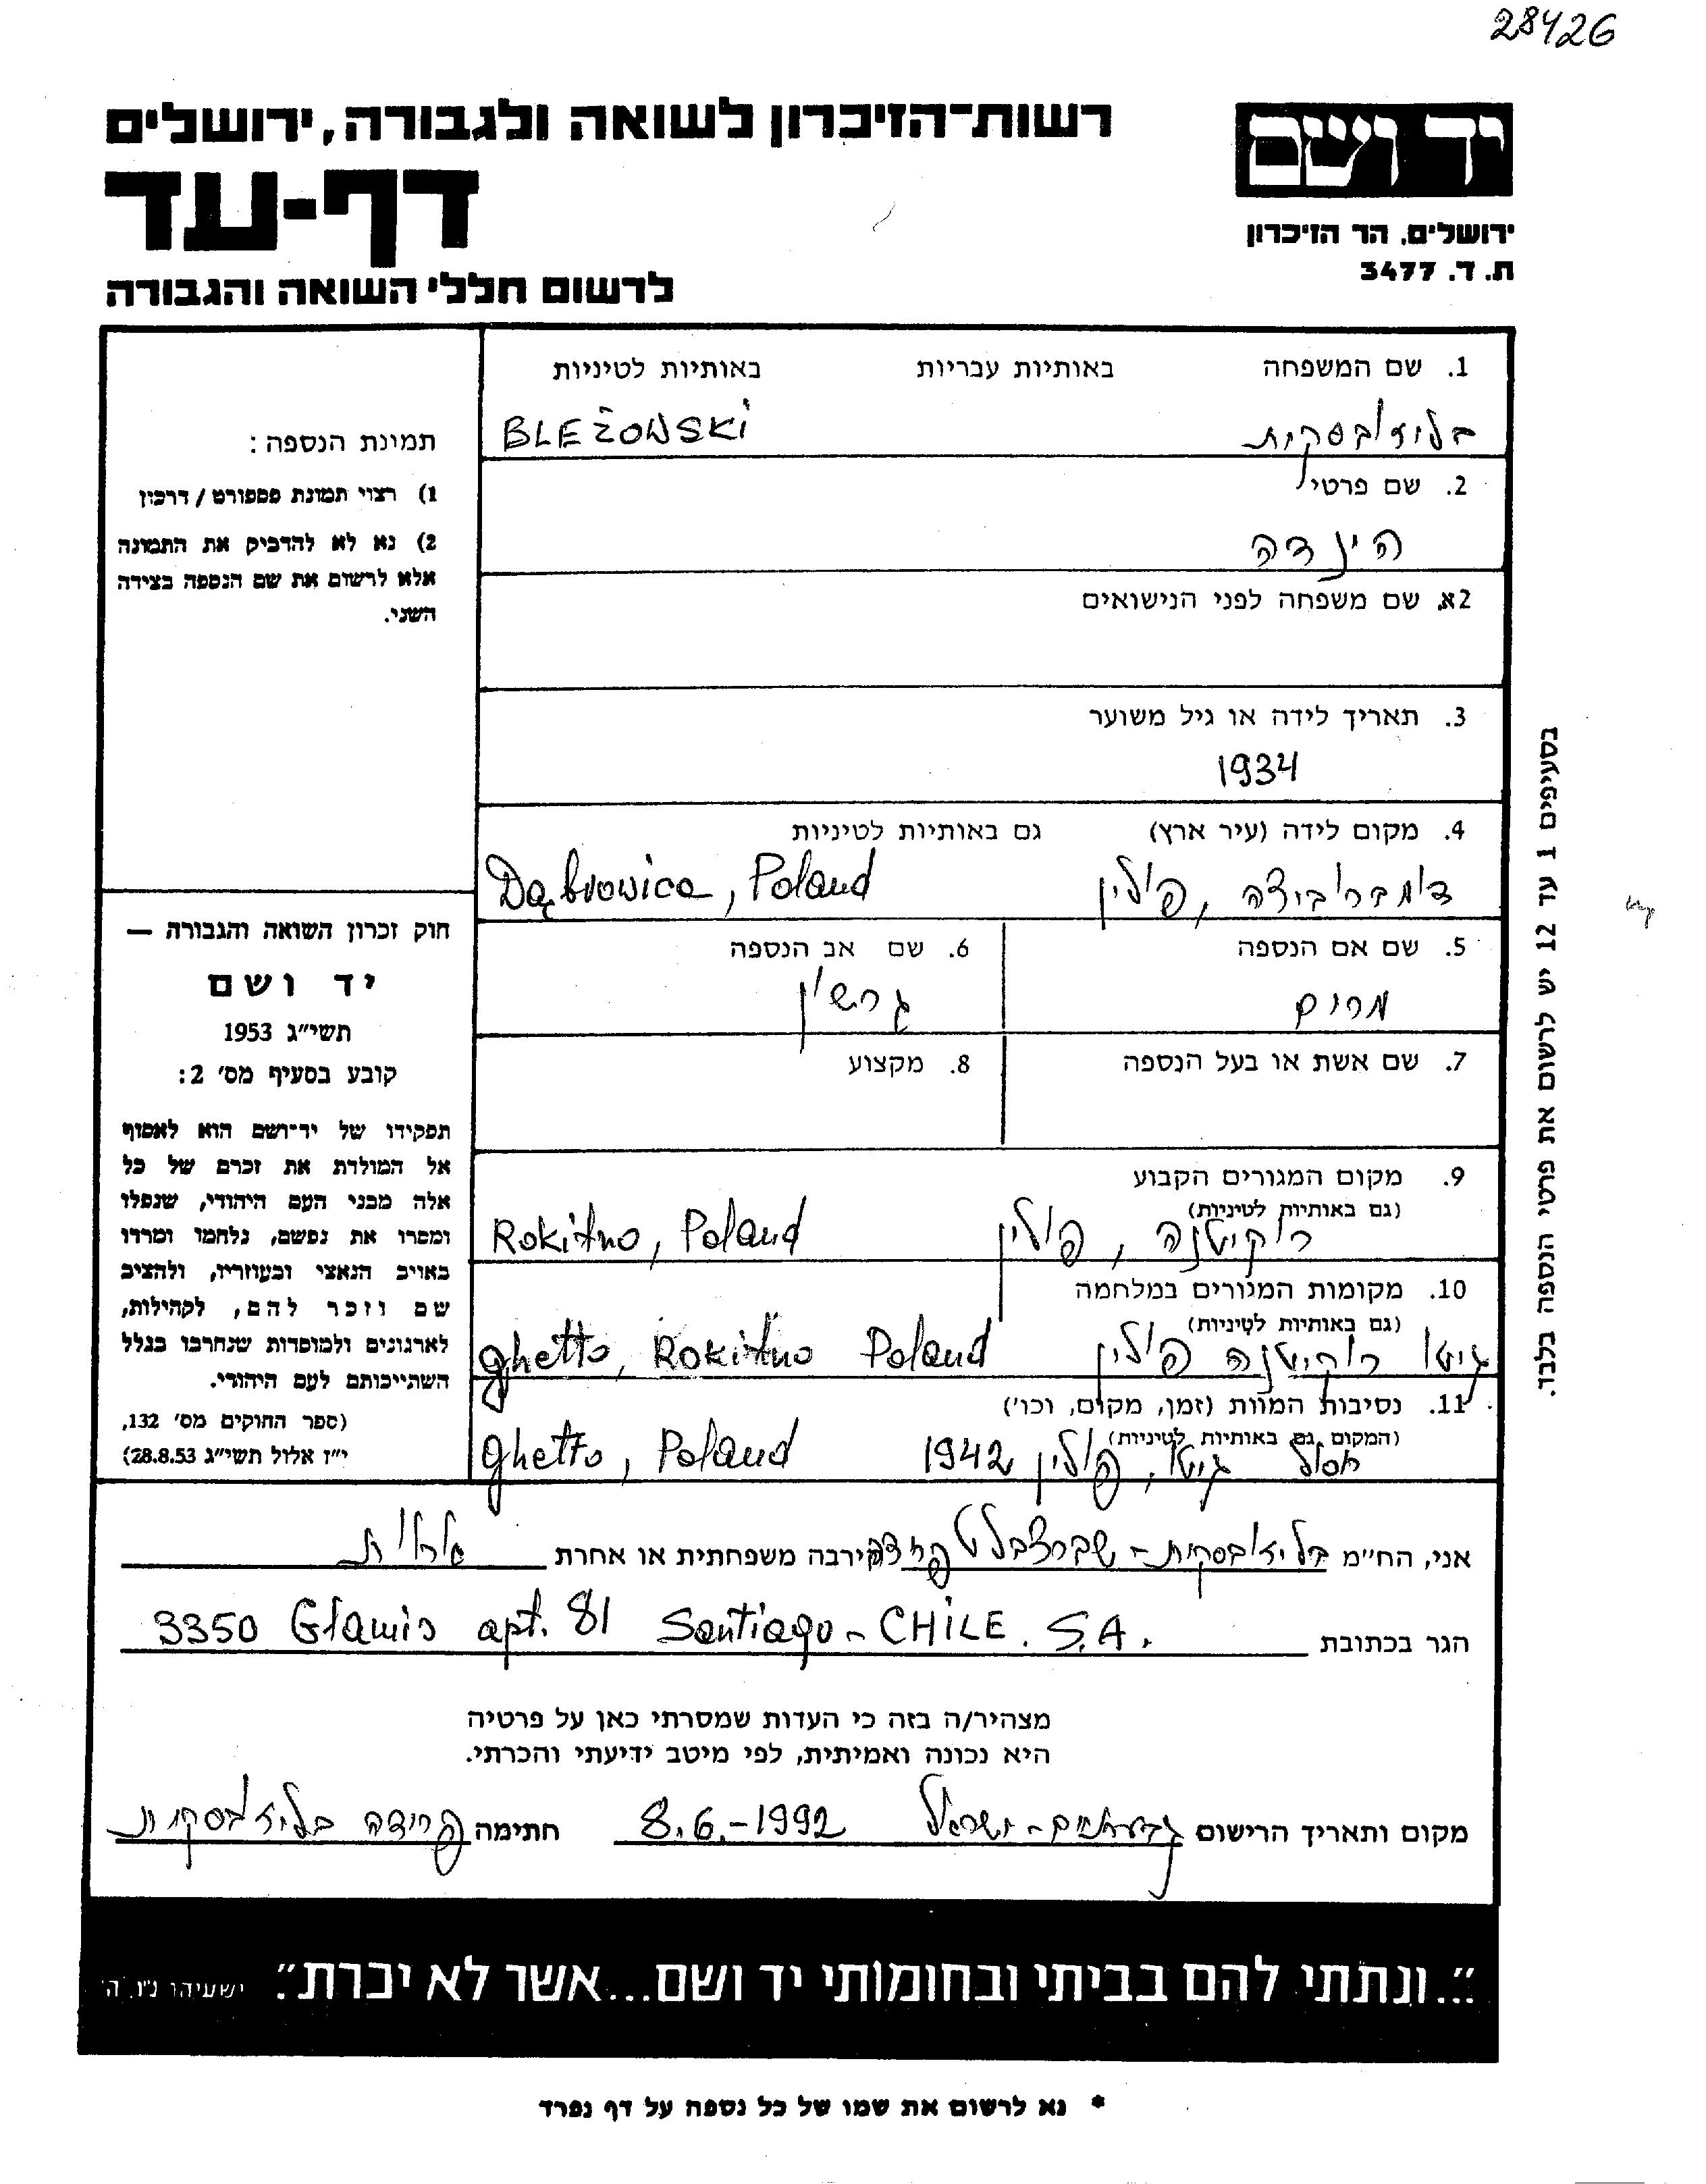 28426
רשות-הזיכרון לשואה ולגבורה, ירושלים
יד ושם
דף-עד
ירושלים, הר הזיכרון
ת. ד. 3477
לרשום חללי השואה והגבורה
1. שם המשפחה באותיות עבריות באותיות לטיניות
בליז'ובסקי BLEŻOWSKI
2. שם פרטי
הינדה
2א. שם משפחה לפני הנישואים
3. תאריך לידה או גיל משוער
1934
4. מקום לידה (עיר ארץ) גם באותיות לטיניות
דומברוביצה, פולין Dąbrowica, Poland
5. שם אם הנספה 6. שם אב הנספה
מרים גרשון
7. שם אשת או בעל הנספה 8. מקצוע
9. מקום המגורים הקבוע
(גם באותיות לטיניות)
רוקיטנה, פולין Rokitno, Poland
10. מקומות המגורים במלחמה
(גם באותיות לטיניות)
גיטו רוקיטנה פולין ghetto, Rokitno Poland
11. נסיבות המוות (זמן, מקום, וכו')
(המקום גם באותיות לטיניות)
גיטו, פולין 1942 ghetto, Poland
תמונת הנספה:
1) רצוי תמונת פספורט / דרכון
2) נא לא להדביק את התמונה
אלא לרשום את שם הנספה בצידה
השני.
חוק זכרון השואה והגבורה —
יד ושם
תשי"ג 1953
קובע בסעיף מס' 2:
תפקידו של יד-ושם הוא לאסוף
אל המולדת את זכרם של כל
אלה מבני העם היהודי, שנפלו
ומסרו את נפשם, נלחמו ומרדו
באויב הנאצי ובעוזריו, ולהציב
שם וזכר להם, לקהילות,
לארגונים ולמוסדות שנחרבו בגלל
השתייכותם לעם היהודי.
(ספר החוקים מס' 132,
י"ז אלול תשי"ג 28.8.53)
בסעיפים 1 עד 12 יש לרשום את פרטי הנספה בלבד.
אני, הח"מ קירבה משפחתית או אחרת אחות
הגר בכתובת 3350 Glamis apt. 81 Santiago - CHILE. S.A.
מצהיר/ה בזה כי העדות שמסרתי כאן על פרטיה
היא נכונה ואמיתית, לפי מיטב ידיעתי והכרתי.
מקום ותאריך הרישום גבעתיים - ישראל 8.6.-1992 חתימה
"...ונתתי להם בביתי ובחומותי יד ושם...אשר לא יכרת". ישעיהו נ"ו, ה'
* נא לרשום את שמו של כל נספה על דף נפרד